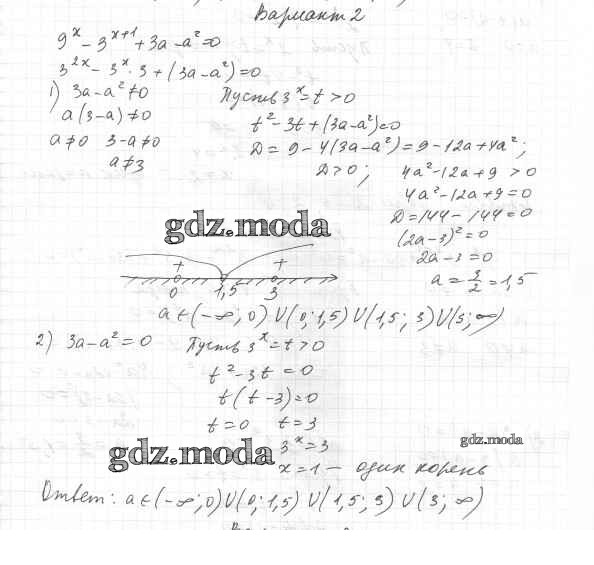 Вариант 2
9^x - 3^{x+1} + 3a - a² = 0
3^{2x} - 3^x · 3 + (3a - a²) = 0
1) 3a - a² ≠ 0
a(3 - a) ≠ 0
a ≠ 0 3 - a ≠ 0
a ≠ 3
Пусть 3^x = t > 0
t² - 3t + (3a - a²) = 0
D = 9 - 4(3a - a²) = 9 - 12a + 4a²;
D > 0; 4a² - 12a + 9 > 0
4a² - 12a + 9 = 0
D = 144 - 144 = 0
(2a - 3)² = 0
2a - 3 = 0
a = 3/2 = 1,5
gdz.moda
+ +
0 1,5 3
a ∈ (-∞; 0) U (0; 1,5) U (1,5; 3) U (3; ∞)
2) 3a - a² = 0 Пусть 3^x = t > 0
t² - 3t = 0
t(t - 3) = 0
t = 0 t = 3
3^x = 3
gdz.moda
gdz.moda
x = 1 — один корень
Ответ: a ∈ (-∞; 0) U (0; 1,5) U (1,5; 3) U (3; ∞)